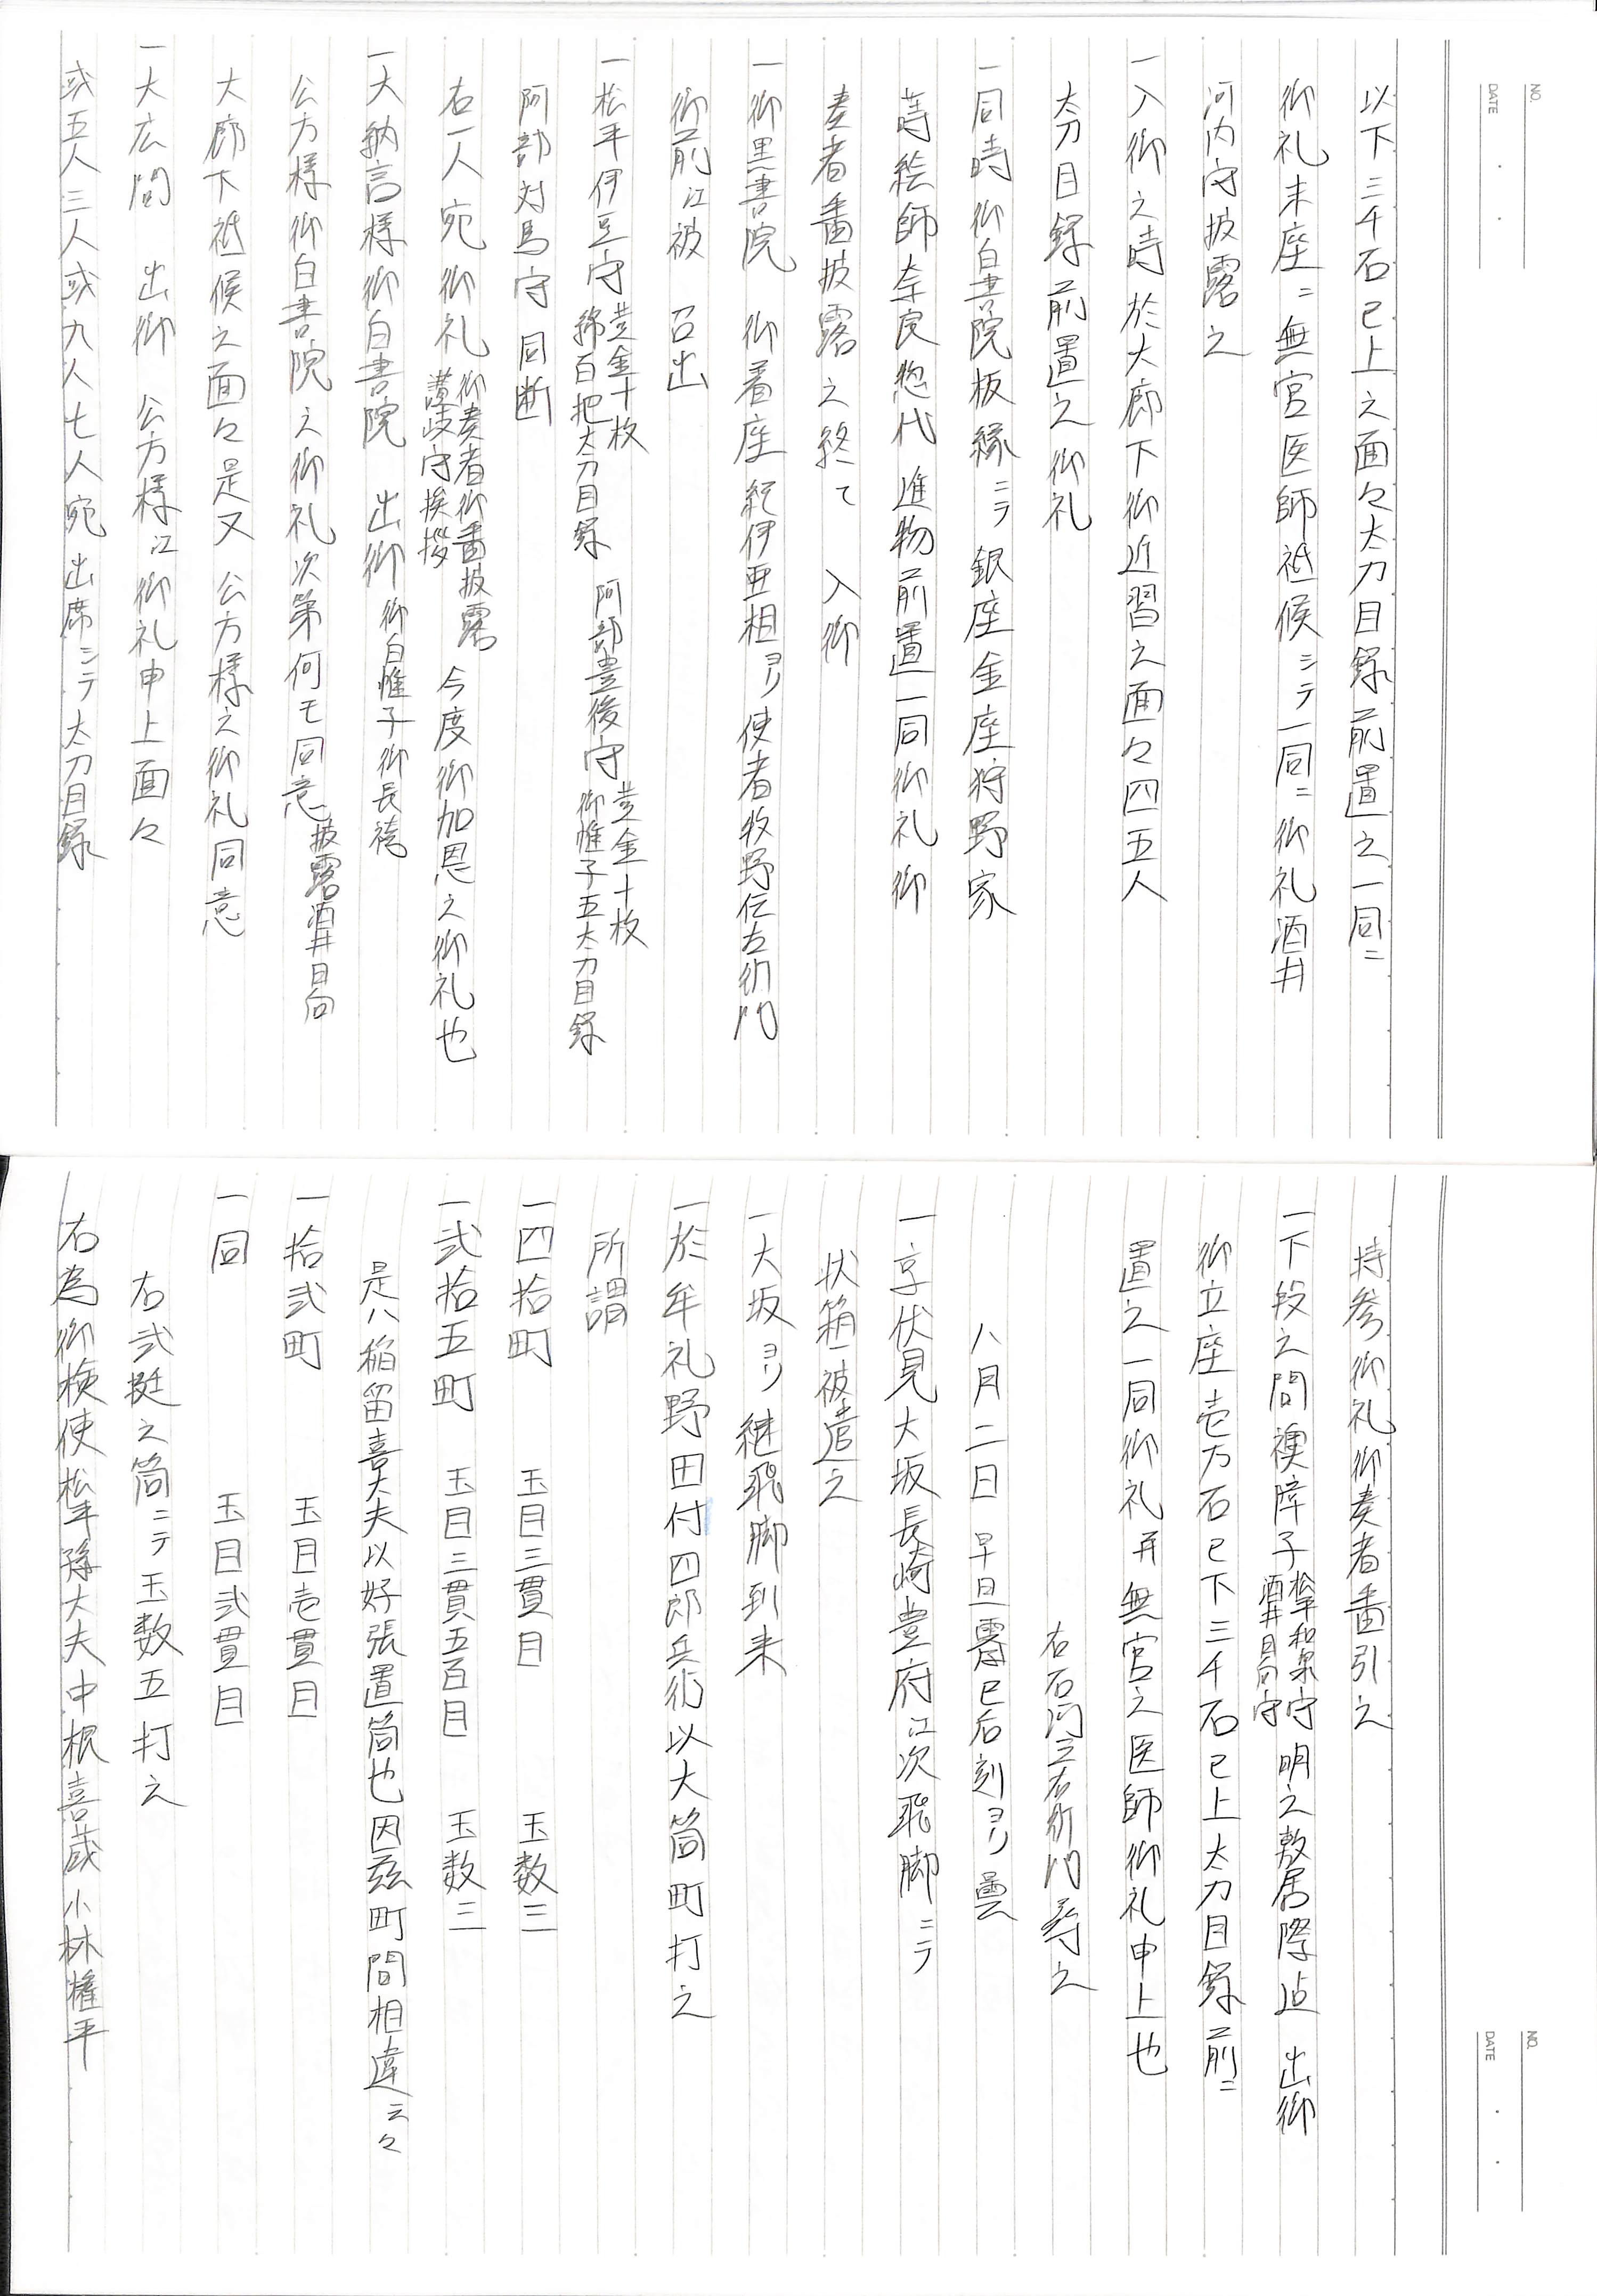 NO.
DATE
以下三千石已上之面々太刀目録前置之一同ニ
御礼末座ニ無官医師祗候シテ一同ニ御礼酒井
河内守披露之
一入御之時於大廊下御近習之面々四五人
太刀目録前置之御礼
一同時御白書院板縁ニテ 銀座金座狩野家
蒔絵師奈良惣代進物前置一同御礼御
奏者番披露之終て 入御
一御黒書院 御着座紀伊亜相ヨリ使者牧野伝左衛門
御前江被 召出
一松平伊豆守 黄金十枚 綿百把太刀目録 阿部豊後守 黄金十枚 御帷子五太刀目録
阿部対馬守 同断
右一人宛御礼 御奏者御番披露 讃岐守挨拶 今度御加恩之御礼也
一大納言様御白書院 出御 御白帷子御長袴
公方様御白書院之御礼次第何モ同意 披露酒井日向
大廊下祗候之面々是又 公方様之御礼同意
一大広間 出御 公方様江御礼申上面々
或五人三人或九人七人宛出席シテ太刀目録
NO.
DATE
持参御礼御奏者番引之
一下段之間襖障子 松平和泉守 酒井日向守 明之敷居際迠 出御
御立座壱万石已下三千石已上太刀目録前ニ
置之一同御礼并無官之医師御礼申上也
右石河三右衛門尋之
八月二日 早旦霽巳后刻ヨリ曇
一京伏見大坂長崎豊府江次飛脚ニテ
状箱被遣之
一大坂ヨリ継飛脚到来
一於牟礼野田付四郎兵衛以大筒町打之
所謂
一四拾町 玉目三貫目 玉数三
一弐拾五町 玉目三貫五百目 玉数三
是ハ稲留喜大夫以好張置筒也因茲町間相違云々
一拾弐町 玉目壱貫目
一同 玉目弐貫目
右弐挺之筒ニテ玉数五打之
右為御検使松平孫大夫中根喜蔵小林権平